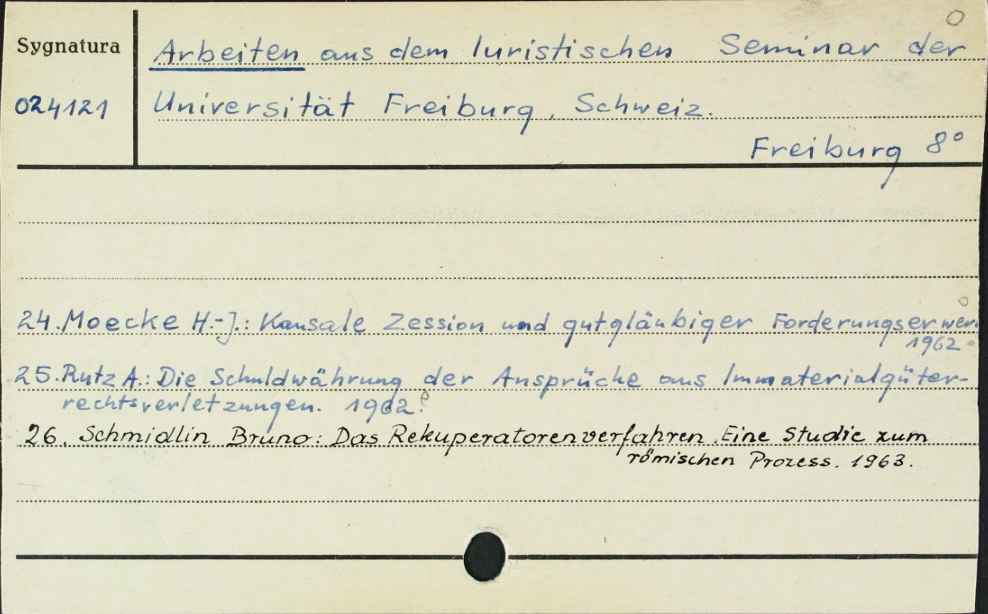 O
Sygnatura
024121
Arbeiten aus dem Iuristischen Seminar der
Universität Freiburg, Schweiz.
Freiburg 8°
24. Moecke H.-J.: Kausale Zession und gutgläubiger Forderungserwer
1962
25. Rutz A.: Die Schuldwährung der Ansprüche aus Immaterialgüter-
rechtsverletzungen. 1962.
26. Schmidlin Bruno: Das Rekuperatorenverfahren. Eine Studie zum
römischen Prozess. 1963.